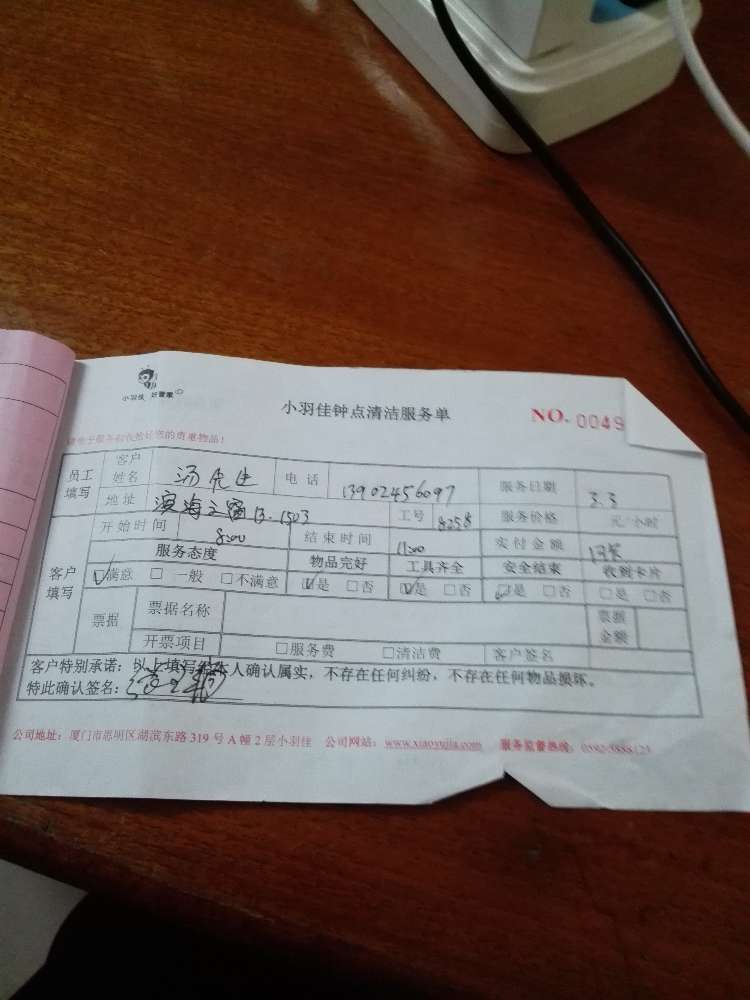 小羽佳 好管家
小羽佳钟点清洁服务单
NO. 0049
员工填写 客户姓名 汤先生 电话 13902456097 服务日期 3.3
地址 滨海 13.1503 工号 8258 服务价格 元/小时
客户填写 开始时间 8:00 结束时间 11:00 实付金额
服务态度 物品完好 工具齐全 安全结束 收到卡片
☑满意 □一般 □不满意 ☑是 □否 ☑是 □否 ☑是 □否 □是 □否
票据 票据名称 票据金额
开票项目 □服务费 □清洁费 客户签名
客户特别承诺：以上填写经本人确认属实，不存在任何纠纷，不存在任何物品损坏。
特此确认签名：
公司地址：厦门市思明区湖滨东路319号A幢2层小羽佳 公司网站：www.xiaoyujia.com 服务监督热线：